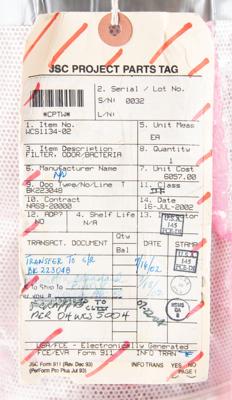 JSC PROJECT PARTS TAG
*CPTW*
2. Serial / Lot No.
S/N: 0032
L/N:
1. Item No.
WCS1134-02
5. Unit Meas
EA
3. Item Description
FILTER, ODOR/BACTERIA
8. Quantity
1
6. Manufacturer Name
7. Unit Cost
6057.00
9. Doc Type/No/Line
BK223048
11. Class
10. Contract
NAS9-20000
14. Date
16-JUL-2002
12. ADP?
NO
4. Shelf Life
N/A
TRANSACT. DOCUMENT
Qty
Bal
DATE
STAMP
TRANSFER TO
BK223048
7/16/02
USA/FCE - Electronically Generated
FCE/EVA Form 911
INFO TRAN
JSC Form 911 (Rev Dec 93)
(PerForm Pro Plus Jul 93)
INFO TRANS
YES NO
PAGE 1